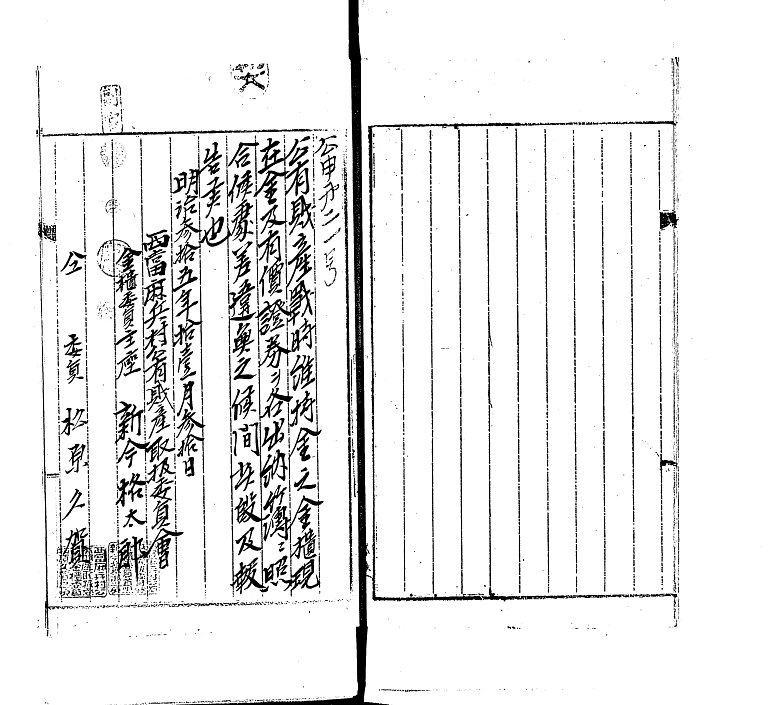 公甲第二一号
公有財產戰時維持金之金櫃現
在金及有價證券ニ各出納簿ニ照
合候處差違無之候間此段及報
告候也
明治参拾五年拾壹月参拾日
西當麻共村公有財產取扱委員會
金櫃委員主座 新今格太郎
仝 委員 松原久賀